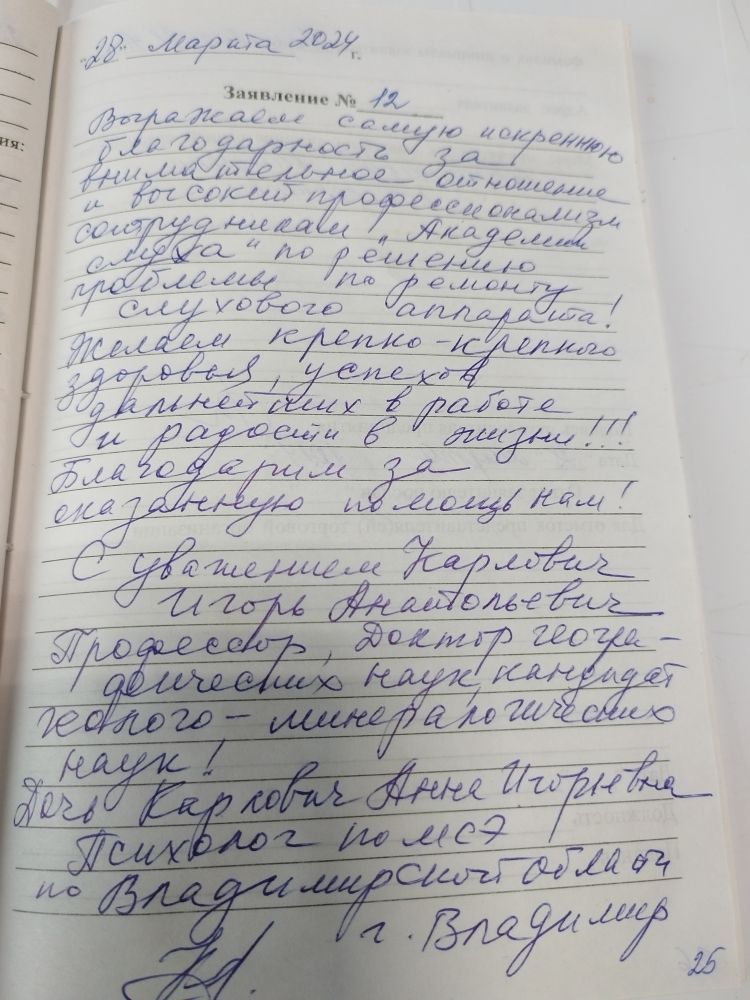 "28" Марта 2024 г.
Заявление № 12
Выражаем самую искреннюю
благодарность за
внимательное отношение
и высокий профессионализм
сотрудникам "Академии
слуха" по решению
проблемы по ремонту
слухового аппарата!
Желаем крепко-крепкого
здоровья, успехов
дальнейших в работе
и радости в жизни!!!
Благодарим за
оказанную помощь нам!
С уважением Карлович
Игорь Анатольевич
Профессор, Доктор геогра-
фических наук, кандидат
геолого-минералогических
наук!
Дочь Карлович Анна Игорьевна
Психолог по МСЭ
по Владимирской области
г. Владимир
25
ия: